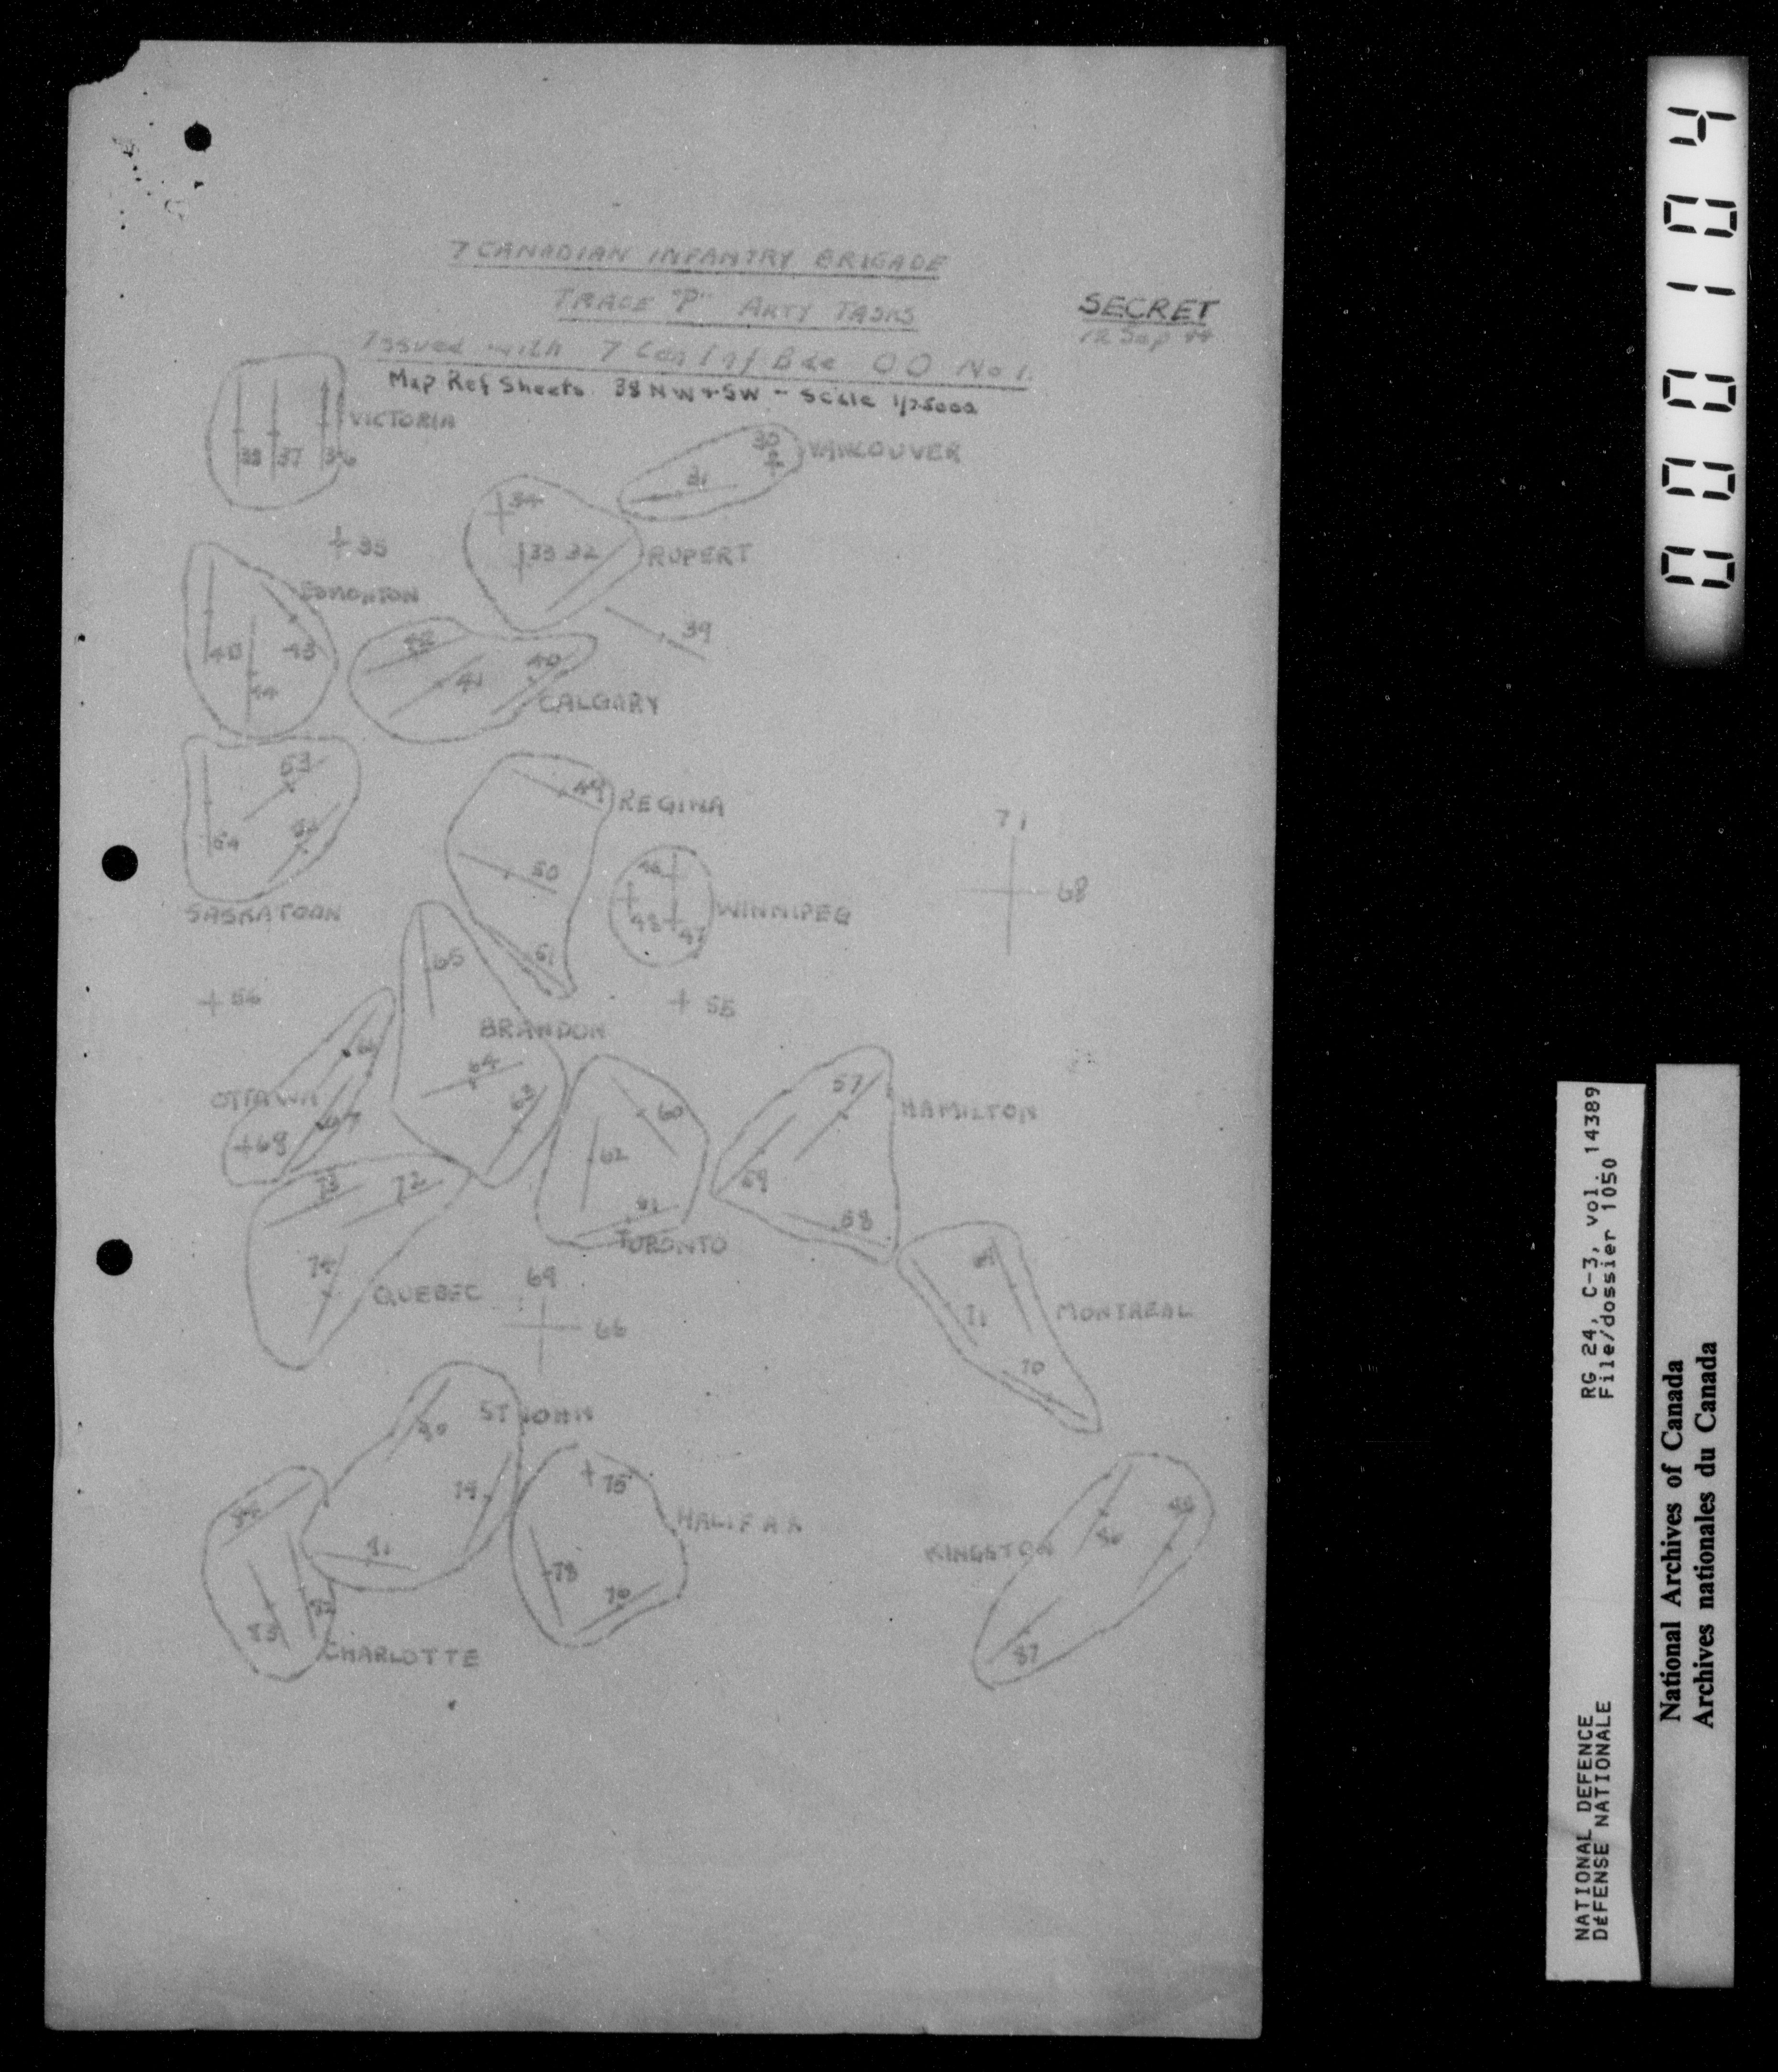 7 CANADIAN INFANTRY BRIGADE
TRACE "P" ARTY TASKS
SECRET
12 Sep 44
Issued with 7 Cdn Inf Bde OO No 1.
Map Ref Sheets 38 NW & SW - Scale 1/25000
VICTORIA
38 37 36
30
VANCOUVER
31
34
35
33 32
RUPERT
EDMONTON
39
43
42
40
41
44
CALGARY
53
49
REGINA
52
54
71
50
68
46
SASKATOON
48
47
WINNIPEG
65
51
56
55
BRANDON
66
64
63
OTTAWA
67
68
60
57
HAMILTON
62
61
59
58
TORONTO
73
72
74
QUEBEC
69
66
69
71
MONTREAL
70
ST JOHN
80
79
75
HALIFAX
81
78
KINGSTON
86
83
82
CHARLOTTE
87
0001104
RG 24, C-3, vol. 14389
File/dossier 1050
NATIONAL DEFENCE
DÉFENSE NATIONALE
National Archives of Canada
Archives nationales du Canada